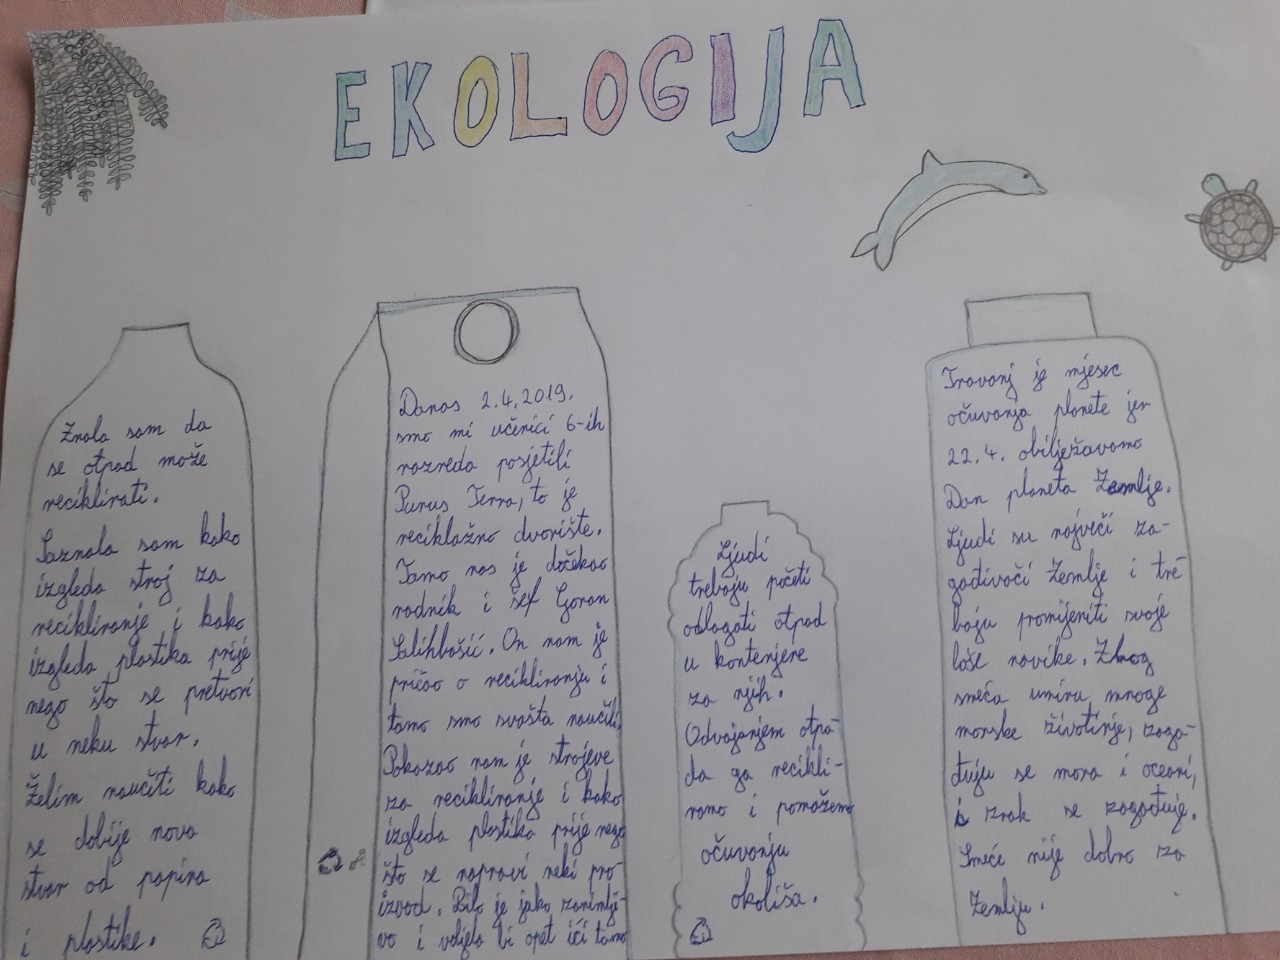 EKOLOGIJA
Znala sam da
se otpad može
reciklirati.
Saznala sam kako
izgleda stroj za
recikliranje i kako
izgleda plastika prije
nego što se pretvori
u neku stvar.
Želim naučiti kako
se dobije nova
stvar od papira
i plastike.
Danas 2.4.2019.
smo mi učenici 6-ih
razreda posjetili
Purus Terra, to je
reciklažno dvorište.
Tamo nas je dočekao
radnik i šef Goran
Salihbašić. On nam je
pričao o recikliranju i
tamo smo svašta naučili.
Pokazao nam je strojeve
za recikliranje i kako
izgleda plastika prije nego
što se napravi neki pro-
izvod. Bilo je jako zanimlji-
vo i voljela bi opet ići tamo
Ljudi
trebaju početi
odlagati otpad
u kontenjere
za njih.
Odvajanjem otpa-
da ga recikli-
ramo i pomažemo
očuvanju
okoliša.
Travanj je mjesec
očuvanja planete jer
22.4. obilježavamo
Dan planeta Zemlje.
Ljudi su najveći za-
gađivači Zemlje i tre-
baju promijeniti svoje
loše navike. Zbog
smeća umiru mnoge
morske životinje, zaga-
đuju se mora i oceani,
i zrak se zagađuje.
Smeće nije dobro za
Zemlju.